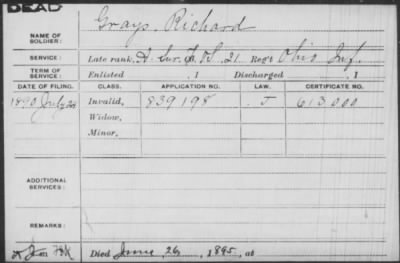 DEAD
Grays, Richard
NAME OF SOLDIER:
SERVICE: Late rank, A. Sur. F. & S. 21 Reg't Ohio Inf.
TERM OF SERVICE: Enlisted , 1 Discharged , 1
DATE OF FILING. CLASS. APPLICATION NO. LAW. CERTIFICATE NO.
1890 July Invalid, 839198 J 613000
Widow,
Minor,
ADDITIONAL SERVICES:
REMARKS:
Died June 26, 1895, at